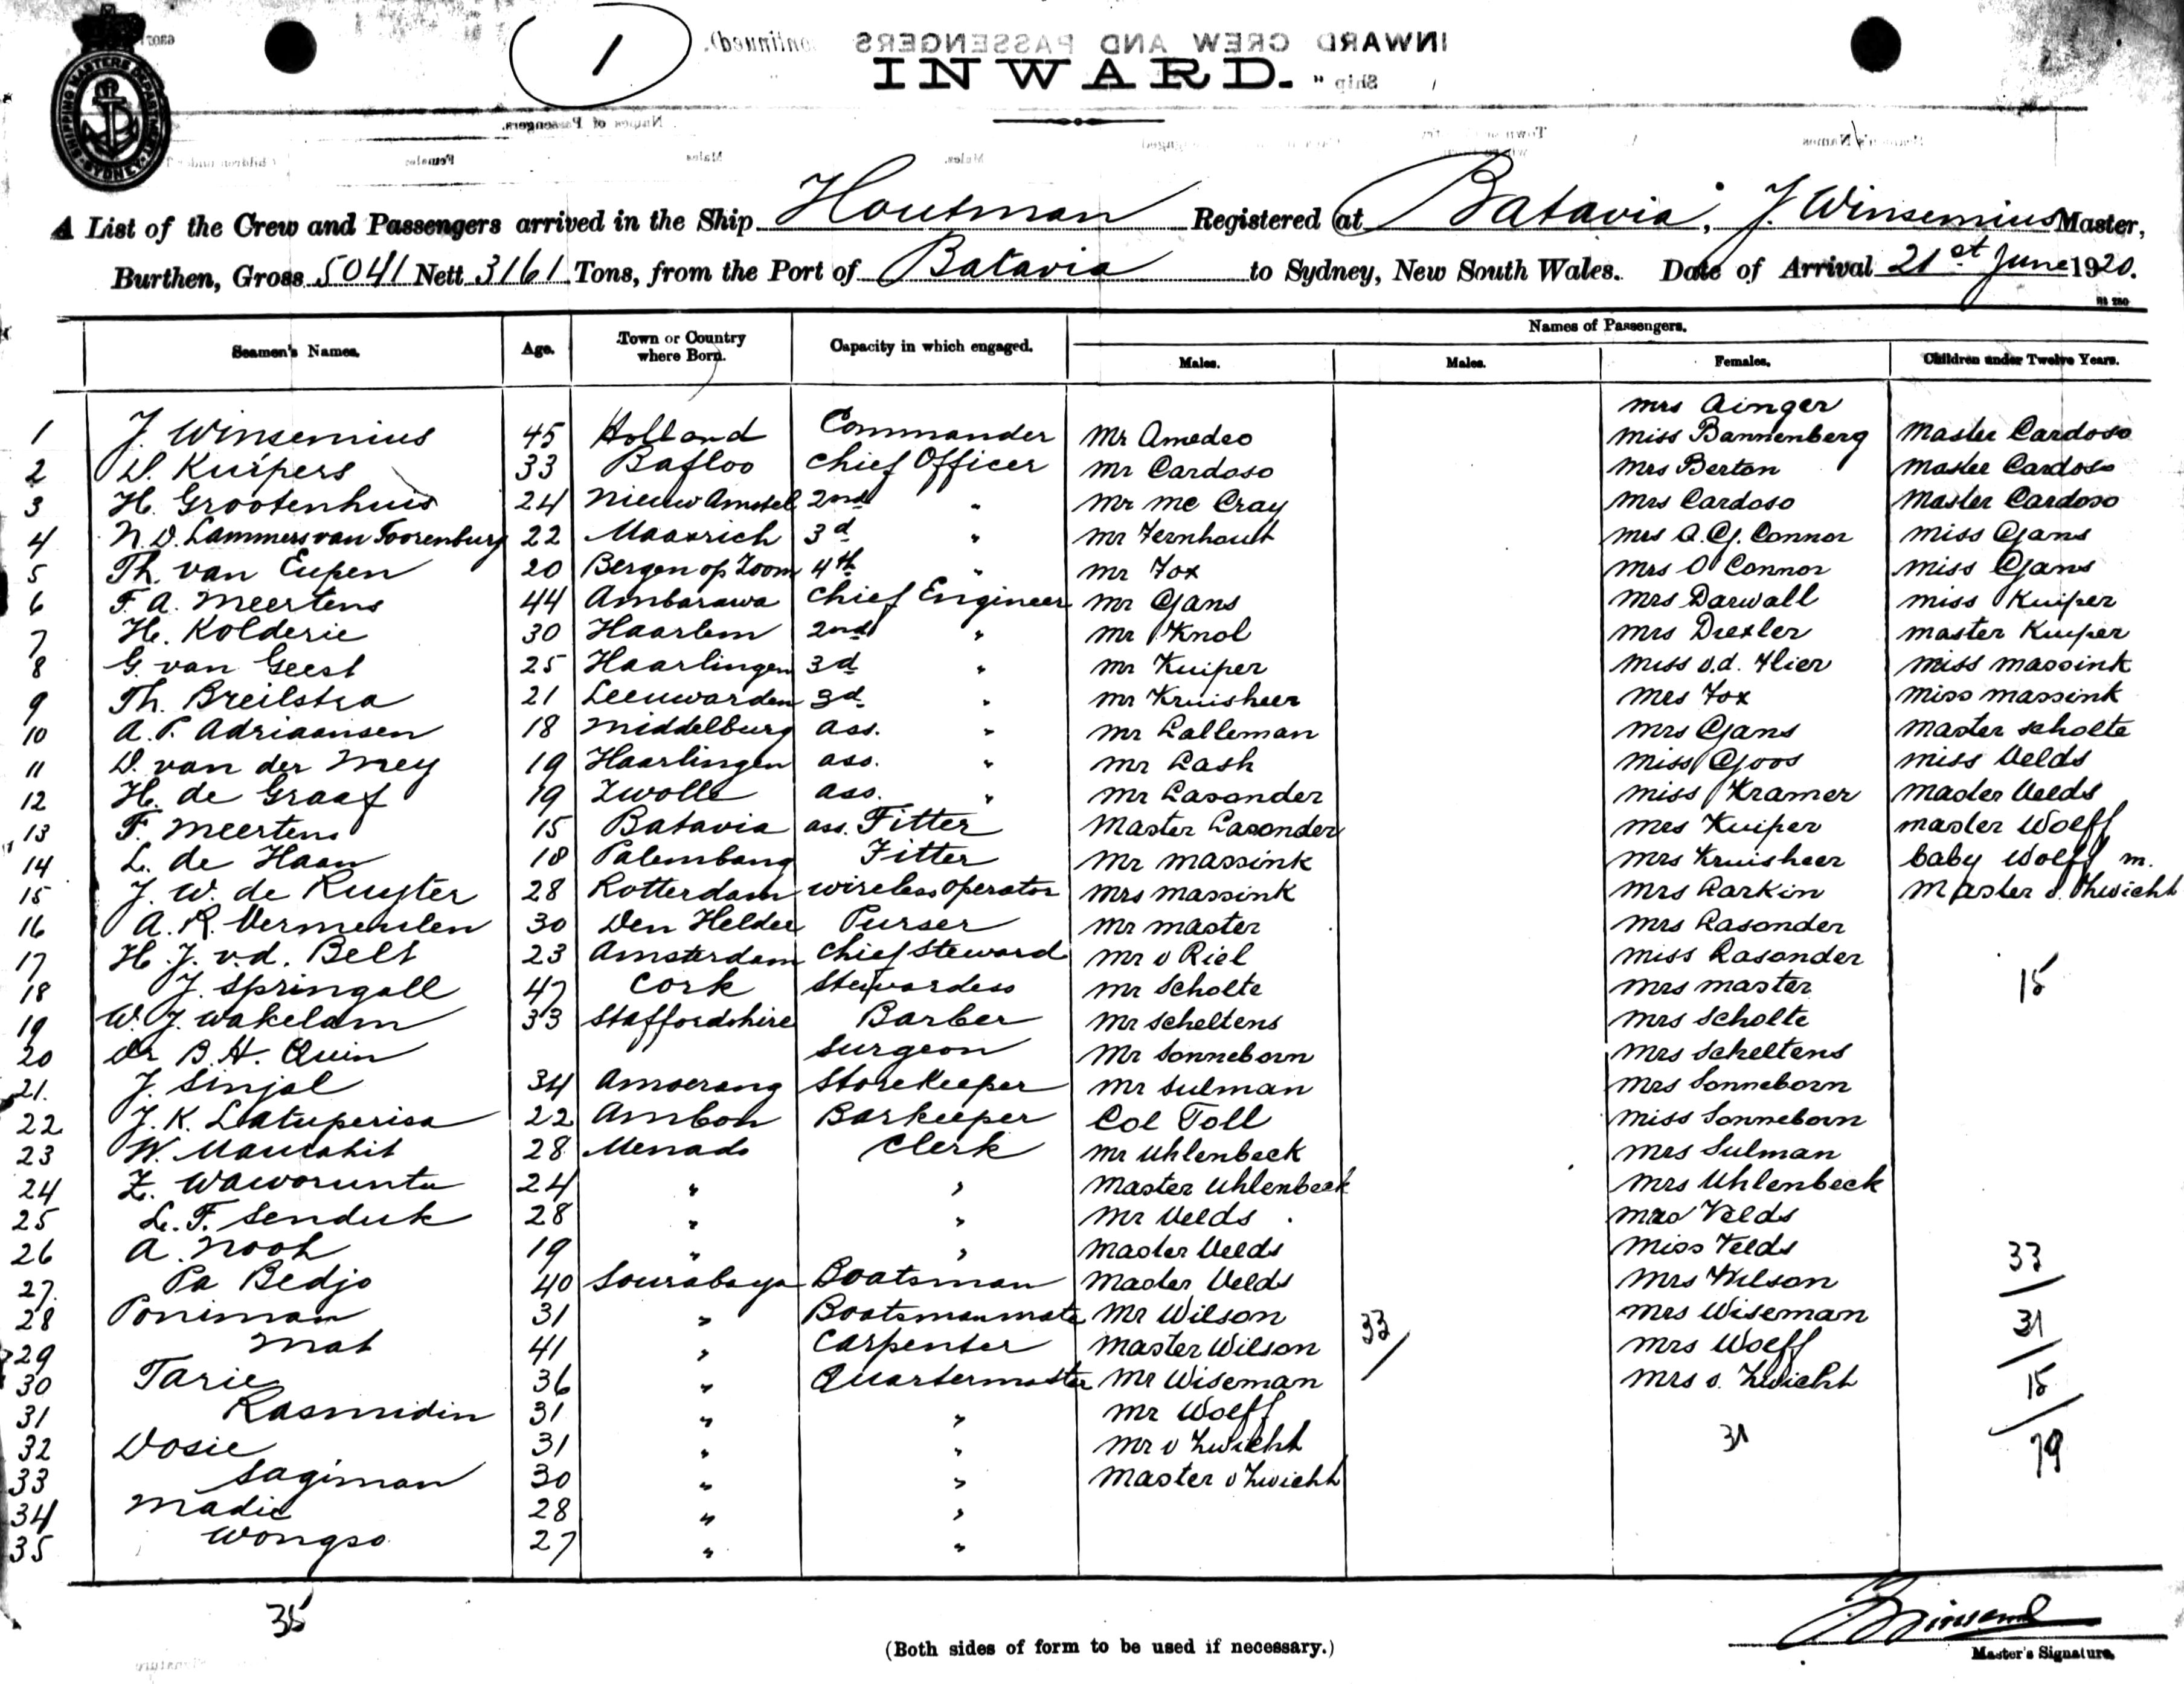 1
INWARD.
SHIPPING MASTERS DEPARTMENT SYDNEY
A List of the Crew and Passengers arrived in the Ship Houtman Registered at Batavia, J. Winsemius Master,
Burthen, Gross 5041 Nett 3161 Tons, from the Port of Batavia to Sydney, New South Wales. Date of Arrival 21st June 1920.
Seamen's Names. Age. Town or Country where Born. Capacity in which engaged. Names of Passengers.
Males. Males. Females. Children under Twelve Years.
Mrs Ainger
1 J. Winsemius 45 Holland Commander Mr Amedeo Miss Bannenberg Master Cardoso
2 D. Kuipers 33 Bafloo Chief Officer Mr Cardoso Mrs Berton Master Cardoso
3 H. Grootenhuis 24 Nieuw Amstel 2nd " Mr Mc Cray Mrs Cardoso Master Cardoso
4 N. D. Lammers van Toorenburg 22 3d " Mr Fernhout Mrs A. G. Connor Miss Gans
5 Th. van Eupen 20 Bergen op Zoom 4th " Mr Fox Mrs O Connor Miss Gans
6 F. A. Meertens 44 Ambarawa Chief Engineer Mr Gans Mrs Darwall Miss Kuiper
7 H. Kolderie 30 Haarlem 2nd " Mr Knol Mrs Drexler Master Kuiper
8 G. van Geest 25 Haarlingen 3d " Mr Kuiper Miss v.d. Flier Miss Massink
9 Th. Breilstra 21 Leeuwarden 3d " Mr Kruisheer Mrs Fox Miss Massink
10 A. P. Adriaansen 18 Middelburg ass. " Mr Lalleman Mrs Gans Master Scholte
11 D. van der Mey 19 Haarlingen ass. " Mr Lash Miss Goos Miss Velds
12 H. de Graaf 19 Zwolle ass. " Mr Lasonder Miss Kramer Master Velds
13 F. Meertens 15 Batavia ass. Fitter Master Lasonder Mrs Kuiper Master Wolff
14 L. de Haan 18 Palembang Fitter Mr Massink Mrs Kruisheer baby Wolff m.
15 J. W. de Ruyter 28 Rotterdam wireless operator Mrs Massink Mrs Larkin Master v. Zwicht
16 A. R. Vermeulen 30 Den Helder Purser Mr Master Mrs Lasonder
17 H. J. v.d. Belt 23 Amsterdam Chief Steward Mr v Riel Miss Lasonder
18 J. Springall 47 Cork Stewardess Mr Scholte Mrs Master 15
19 W. J. Wakelam 33 Staffordshire Barber Mr Scheltens Mrs Scholte
20 Dr B. H. Quin Surgeon Mr Sonneborn Mrs Scheltens
21. J. Sinjal 34 Amoerang Storekeeper Mr Sulman Mrs Sonneborn
22 J. K. Latuperisa 22 Ambon Barkeeper Col Toll Miss Sonneborn
23 W. 28 Menado Clerk Mr Uhlenbeck Mrs Sulman
24 Z. Waworuntu 24 " " Master Uhlenbeck Mrs Uhlenbeck
25 L. F. Senduk 28 " " Mr Velds Mrs Velds
26 A. Nooh 19 " " Master Velds Miss Velds 33
27. Pa Bedjo 40 Sourabaya Boatsman Master Velds Mrs Wilson
28 Poniman 31 " Boatsmanmate Mr Wilson 33 Mrs Wiseman 31
29 Mat 41 " Carpenter Master Wilson Mrs Wolff
30 Tarie 36 " Quartermaster Mr Wiseman Mrs v. Zwicht 15
31 Rasmidin 31 " " Mr Wolff
32 Dosie 31 " " Mr v Zwicht 31 79
33 Sagiman 30 " " Master v Zwicht
34 Madie 28 " "
35 Wongso 27 " "
35
(Both sides of form to be used if necessary.)
Master's Signature.